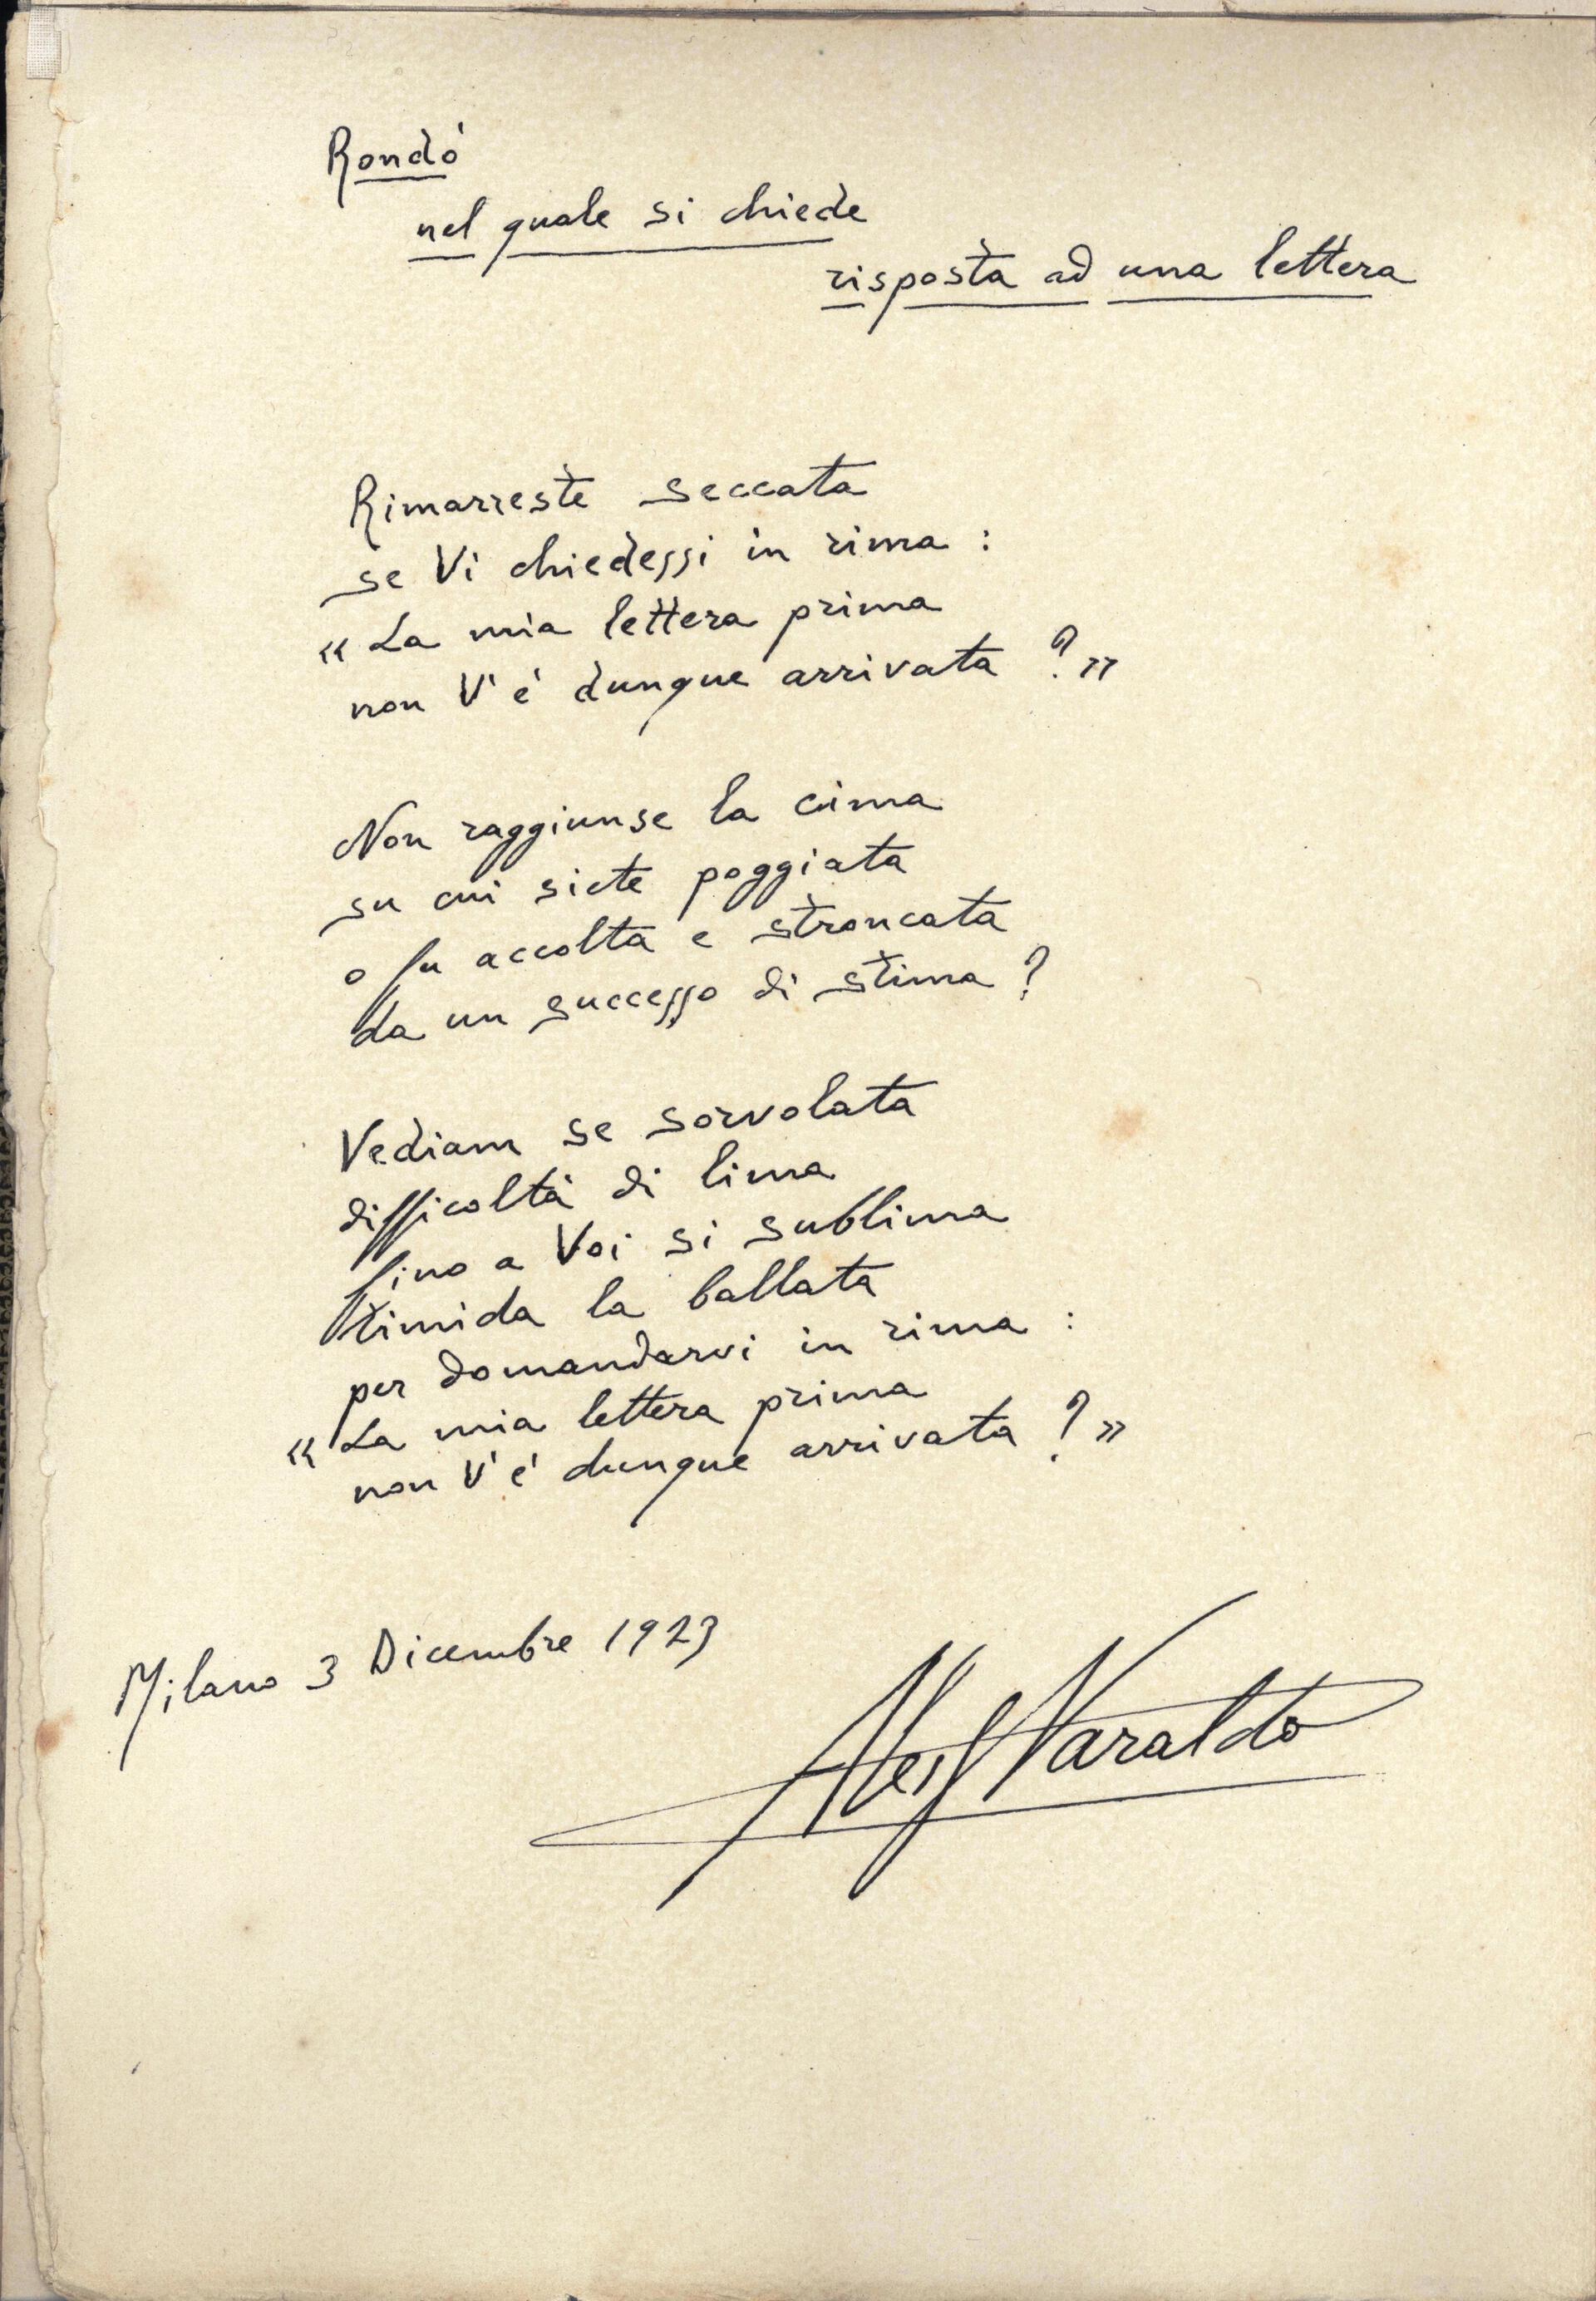 Rondò
nel quale si chiede
risposta ad una lettera
Rimarreste seccata
se Vi chiedessi in rima :
« La mia lettera prima
non V'è dunque arrivata ? »
Non raggiunse la cima
su cui siete poggiata
o fu accolta e stroncata
da un successo di stima ?
Vediam se sorvolata
difficoltà di lima
fino a Voi si sublima
timida la ballata
per domandarvi in rima :
« La mia lettera prima
non V'è dunque arrivata ? »
Milano 3 Dicembre 1923
Aless Varaldo